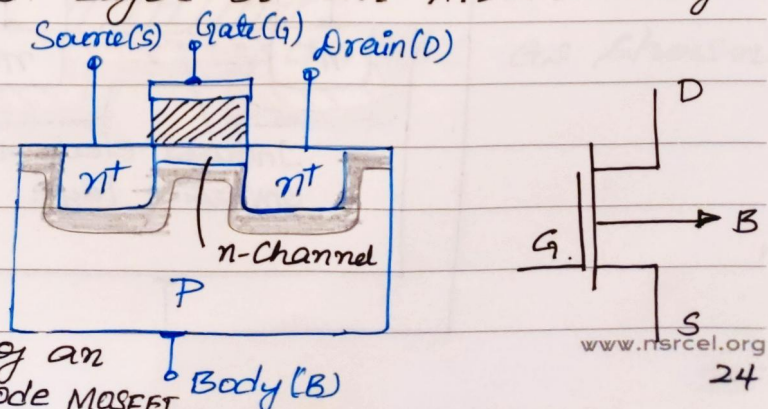 Source(S) Gate(G) Drain(D)
n+ n+
n-Channel
P
Body(B)
D
G.
B
S
g an
ode MOSFET
www.nsrcel.org
24